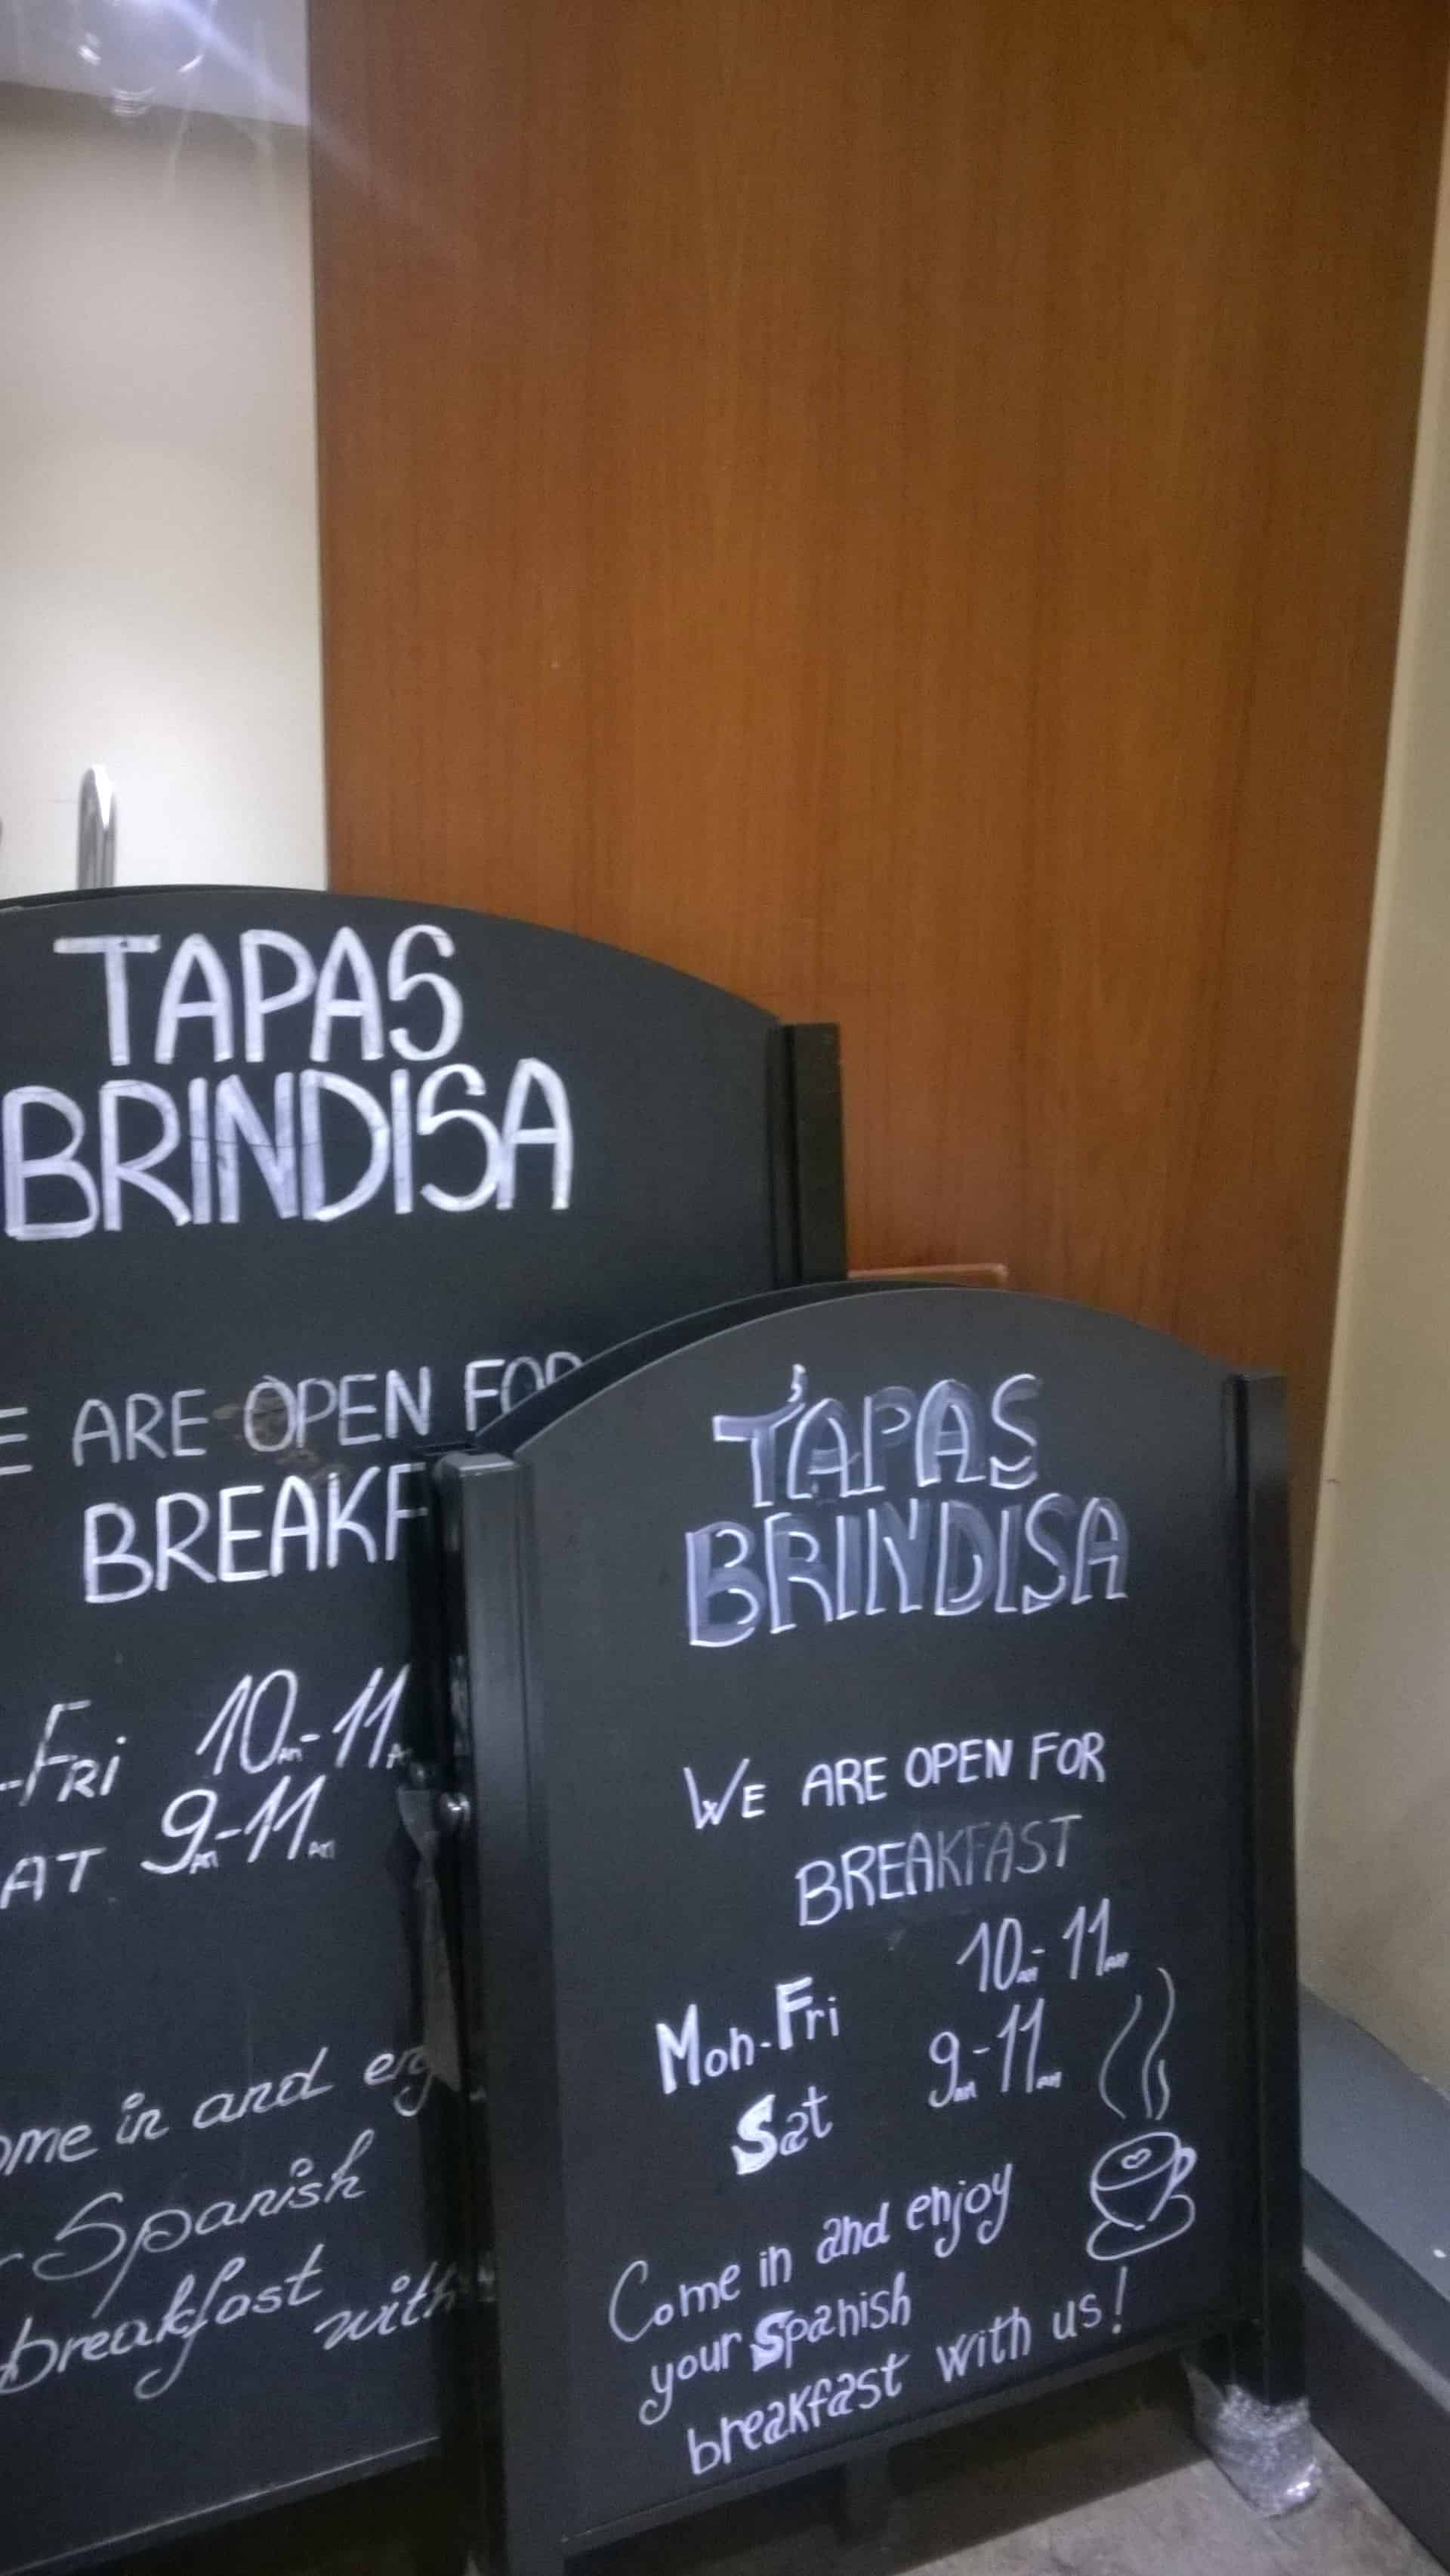 TAPAS
BRINDISA
ARE OPEN FOR
FRI 10AM-11AM
9AM-11AM
in and
Spanish
breakfast
with
TAPAS
BRINDISA
WE ARE OPEN FOR
BREAKFAST
Mon-Fri 10AM-11AM
Sat 9AM-11AM
Come in and enjoy
your Spanish
breakfast with us!